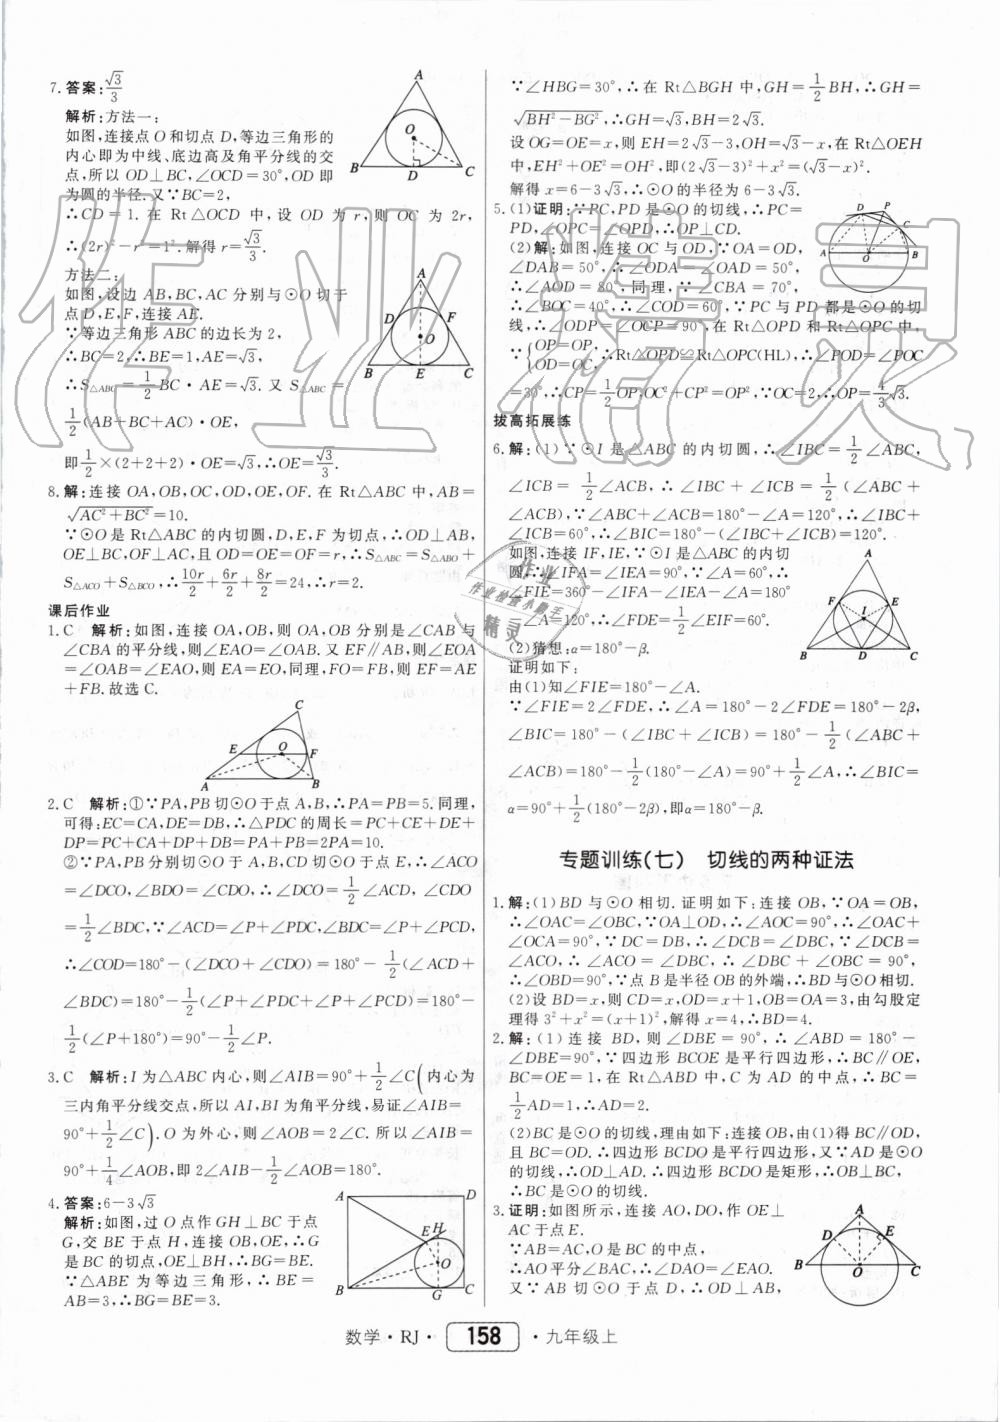 7. 答案:√3/3
解析:方法一:
如图,连接点 O 和切点 D,等边三角形的
内心即为中线、底边高及角平分线的交
点,所以 OD⊥BC,∠OCD=30°,OD 即
为圆的半径. 又∵BC=2,
∴CD=1. 在 Rt△OCD 中,设 OD 为 r,则 OC 为 2r,
∴(2r)²-r²=1². 解得 r=√3/3.
方法二:
如图,设边 AB,BC,AC 分别与⊙O 切于
点 D,E,F,连接 AE.
∵等边三角形 ABC 的边长为 2,
∴BC=2,∴BE=1,AE=√3.
∴S△ABC=1/2 BC·AE=√3. 又 S△ABC=
1/2(AB+BC+AC)·OE,
即 1/2×(2+2+2)·OE=√3,∴OE=√3/3.
8. 解:连接 OA,OB,OC,OD,OE,OF. 在 Rt△ABC 中,AB=
√(AC²+BC²)=10.
∵⊙O 是 Rt△ABC 的内切圆,D,E,F 为切点,∴OD⊥AB,
OE⊥BC,OF⊥AC,且 OD=OE=OF=r,∴S△ABC=S△ABO+
S△ACO+S△BCO,∴10r/2+6r/2+8r/2=24,∴r=2.
课后作业
1. C 解析:如图,连接 OA,OB,则 OA,OB 分别是∠CAB 与
∠CBA 的平分线,则∠EAO=∠OAB. 又 EF∥AB,则∠EOA
=∠OAB=∠EAO,则 EA=EO,同理,FO=FB,则 EF=AE
+FB. 故选 C.
2. C 解析:①∵PA,PB 切⊙O 于点 A,B,∴PA=PB=5. 同理,
可得:EC=CA,DE=DB,∴△PDC 的周长=PC+CE+DE+
DP=PC+CA+DP+DB=PA+PB=2PA=10.
②∵PA,PB 分别切⊙O 于 A,B,CD 切⊙O 于点 E,∴∠ACO
=∠DCO,∠BDO=∠CDO,∴∠DCO=1/2∠ACD,∠CDO
=1/2∠BDC,∵∠ACD=∠P+∠PDC,∠BDC=∠P+∠PCD,
∴∠COD=180°-(∠DCO+∠CDO)=180°-1/2(∠ACD+
∠BDC)=180°-1/2(∠P+∠PDC+∠P+∠PCD)=180°-
1/2(∠P+180°)=90°-1/2∠P.
3. C 解析:I 为△ABC 内心,则∠AIB=90°+1/2∠C(内心为
三内角平分线交点,所以 AI,BI 为角平分线,易证∠AIB=
90°+1/2∠C). O 为外心,则∠AOB=2∠C. 所以∠AIB=
90°+1/4∠AOB,即 2∠AIB-1/2∠AOB=180°.
4. 答案:6-3√3
解析:如图,过 O 点作 GH⊥BC 于点
G,交 BE 于点 H,连接 OB,OE,∴G
是 BC 的切点,OE⊥BH,∴BG=BE.
∵△ABE 为等边三角形,∴BE=
AB=3,∴BG=BE=3.
∵∠HBG=30°,∴在 Rt△BGH 中,GH=1/2 BH,∴GH=
√(BH²-BG²),∴GH=√3,BH=2√3.
设 OG=OE=x,则 EH=2√3-3,OH=√3-x,在 Rt△OEH
中,EH²+OE²=OH²,即(2√3-3)²+x²=(√3-x)².
解得 x=6-3√3,∴⊙O 的半径为 6-3√3.
5. (1)证明:∵PC,PD 是⊙O 的切线,∴PC=
PD,∠OPC=∠OPD,∴OP⊥CD.
(2)解:如图,连接 OC 与 OD,∵OA=OD,
∠DAB=50°,∴∠ODA=∠OAD=50°,
∴∠AOD=80°,同理,∵∠CBA=70°,
∴∠BOC=40°,∴∠COD=60°,∵PC 与 PD 都是⊙O 的切
线,∴∠ODP=∠OCP=90°,在 Rt△OPD 和 Rt△OPC 中,
∵{OP=OP,
OD=OC, ∴Rt△OPD≌Rt△OPC(HL),∴∠POD=∠POC
=30°,∴CP=1/2OP,∵OC²+CP²=OP²,∵OC=2,∴OP=4/3√3.
拔高拓展练
6. 解:(1)∵⊙I 是△ABC 的内切圆,∴∠IBC=1/2∠ABC,
∠ICB=1/2∠ACB,∴∠IBC+∠ICB=1/2(∠ABC+
∠ACB),∵∠ABC+∠ACB=180°-∠A=120°,∴∠IBC+
∠ICB=60°,∴∠BIC=180°-(∠IBC+∠ICB)=120°.
如图,连接 IF,IE,∵⊙I 是△ABC 的内切
圆,∴∠IFA=∠IEA=90°,∵∠A=60°,∴
∠FIE=360°-∠IFA-∠IEA-∠A=180°
-∠A=120°,∴∠FDE=1/2∠EIF=60°.
(2)猜想:α=180°-β.
证明如下:
由(1)知∠FIE=180°-∠A.
∵∠FIE=2∠FDE,∴∠A=180°-2∠FDE=180°-2β,
∠BIC=180°-(∠IBC+∠ICB)=180°-1/2(∠ABC+
∠ACB)=180°-1/2(180°-∠A)=90°+1/2∠A,∴∠BIC=
α=90°+1/2(180°-2β),即α=180°-β.
专题训练(七) 切线的两种证法
1. 解:(1)BD 与⊙O 相切. 证明如下:连接 OB,∵OA=OB,
∴∠OAC=∠OBC,∵OA⊥OD,∴∠AOC=90°,∴∠OAC+
∠OCA=90°,∵DC=DB,∴∠DCB=∠DBC,∵∠DCB=
∠ACO,∴∠ACO=∠DBC,∴∠DBC+∠OBC=90°,
∴∠OBD=90°,∵点 B 是半径 OB 的外端,∴BD 与⊙O 相切.
(2)设 BD=x,则 CD=x,OD=x+1,OB=OA=3,由勾股定
理得 3²+x²=(x+1)²,解得 x=4,∴BD=4.
2. 解:(1)连接 BD,则∠DBE=90°,∴∠ABD=180°-
∠DBE=90°,∵四边形 BCOE 是平行四边形,∴BC∥OE,
BC=OE=1,在 Rt△ABD 中,C 为 AD 的中点,∴BC=
1/2AD=1,∴AD=2.
(2)BC 是⊙O 的切线,理由如下:连接 OB,由(1)得 BC∥OD,
且 BC=OD. ∴四边形 BCDO 是平行四边形,又∵AD 是⊙O
的切线,∴OD⊥AD. ∴四边形 BCDO 是矩形,∴OB⊥BC,
∴BC 是⊙O 的切线.
3. 证明:如图所示,连接 AO,DO,作 OE⊥
AC 于点 E.
∵AB=AC,O 为 BC 的中点,
∴AO 平分∠BAC,∴∠DAO=∠EAO.
又∵AB 切⊙O 于点 D,∴OD⊥AB,
数学·RJ· 158 ·九年级上